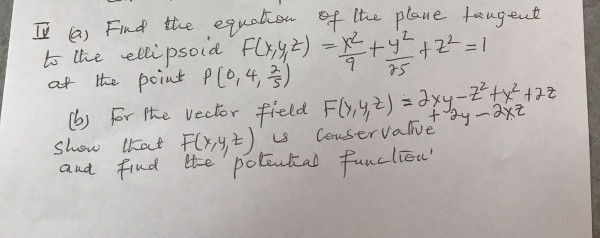 IV (a) Find the equation of the plane tangent
to the ellipsoid F(x,y,z) = x²/9 + y²/25 + z² = 1
at the point P(0, 4, 3/5)
(b) For the vector field F(x,y,z) = 2xy - z² + x² + 2z
+ 2y - 2xz
show that F(x,y,z) is conservative
and find the potential function.